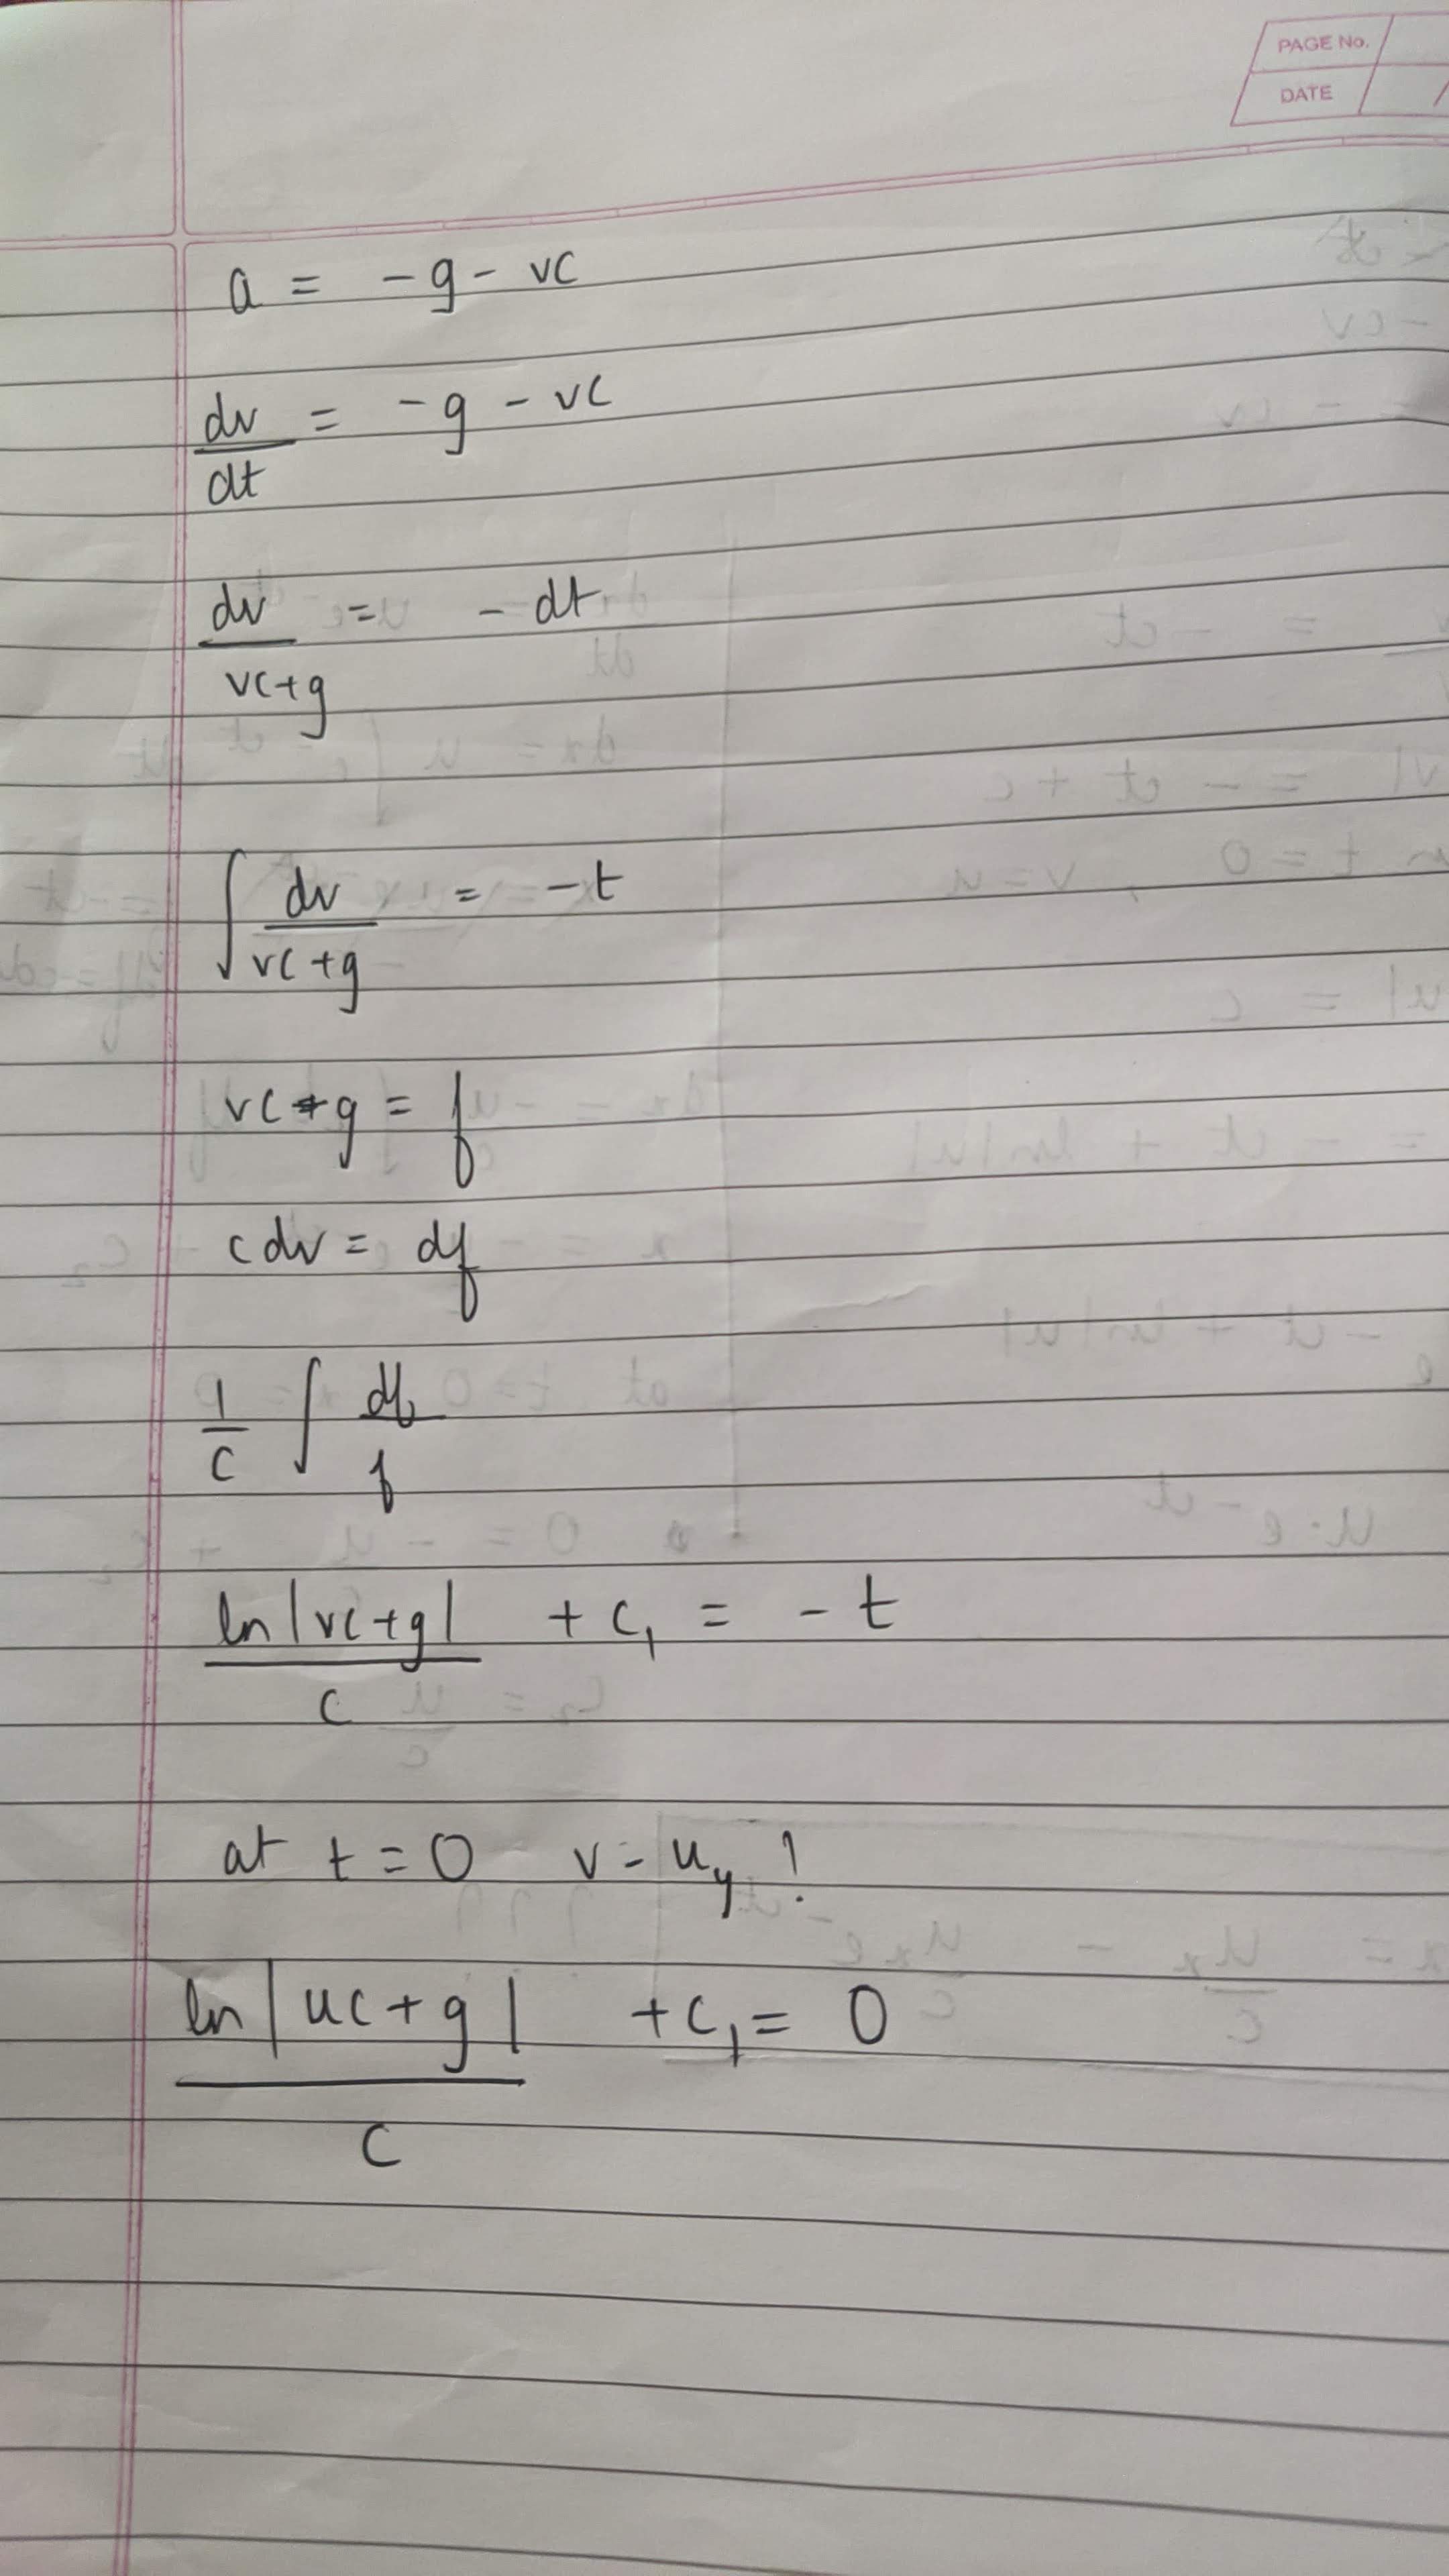 PAGE No.
DATE /
a = -g - vc
dv/dt = -g - vc
dv/vc+g = - dt
∫ dv/vc+g = -t
vc+g = f
cdv = df
1/c ∫ df/f
ln|vc+g|/c + c₁ = - t
at t = 0 v = u_y !
ln|uc+g|/c + c₁ = 0